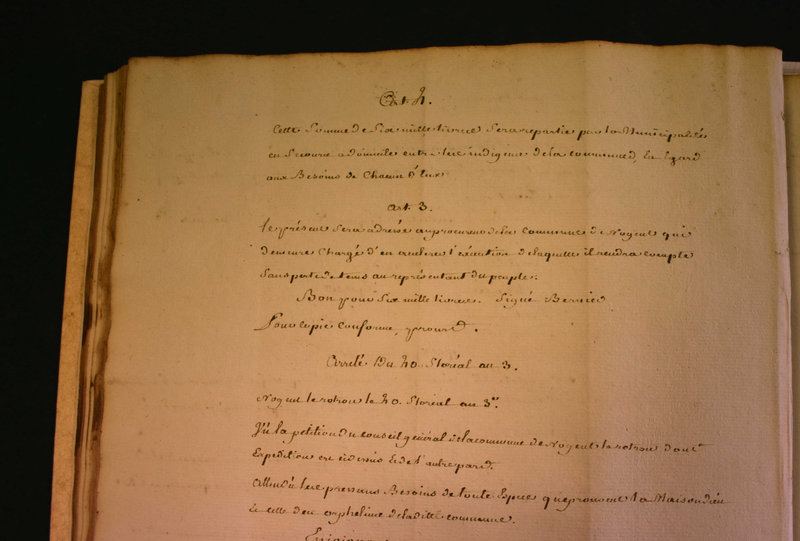 Art. 2.
Cette Somme de Six mille livres Sera repartie par la Municipalité
en Secours a domicile entre les indigens de la commune, eu Egard
aux Besoins de Chacun d'Eux
art. 3.
le présent Sera adressé au procureur de la Commune de Nogent qui
demeure Chargé d'en acelerer l'éxécution de laquelle il rendra compte
Sans perte de tems au représentant du peuple.
Bon pour Six mille livres. Signé Bernier
Pour copie Conforme,
Arrêté Du 20 floréal an 3.
Nogent le rotrou le 20. floréal an 3e.
Vu la petition du conseil général de la commune de Nogent le rotrou dont
Expedition est ci dessus & de l'autre part.
Attendu les pressans Besoins de toute Espece qu'eprouvent la Maison dieu
& celle des orphelines de la ditte commune.